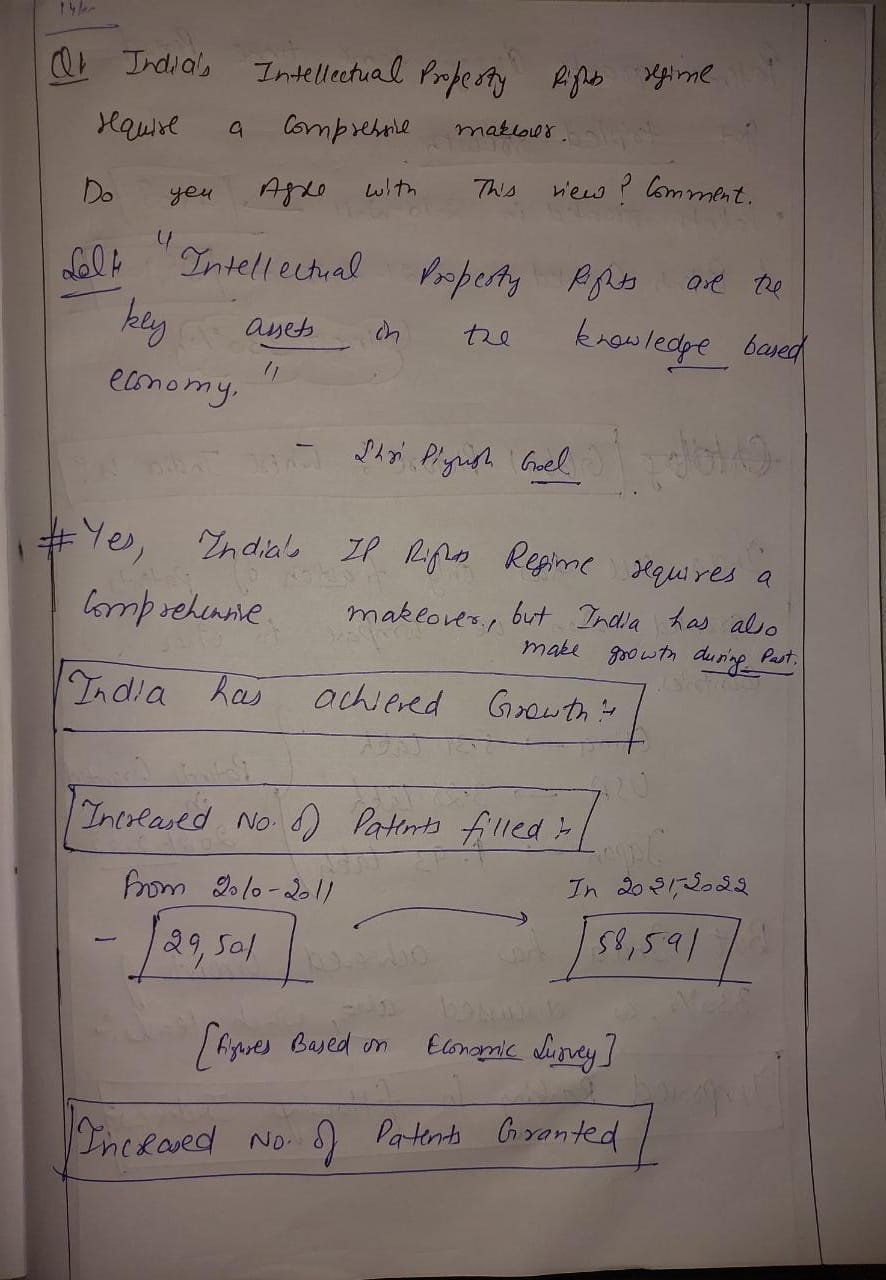 Q1 India's Intellectual Property Rights regime
require a Comprehensive makeover.
Do you Agree with This view? Comment.
Sol:- "Intellectual Property Rights are the
key assets in the knowledge based
economy."
- Shri Piyush Goel
# Yes, India's IP Rights Regime requires a
Comprehensive makeover, but India has also
make growth during Past.
India has achieved Growth :-
Increased No. of Patents filled :-
From 2010-2011 In 2021-2022
- 29,501 → 58,591
[Figures Based on Economic Survey]
Increased No. of Patents Granted